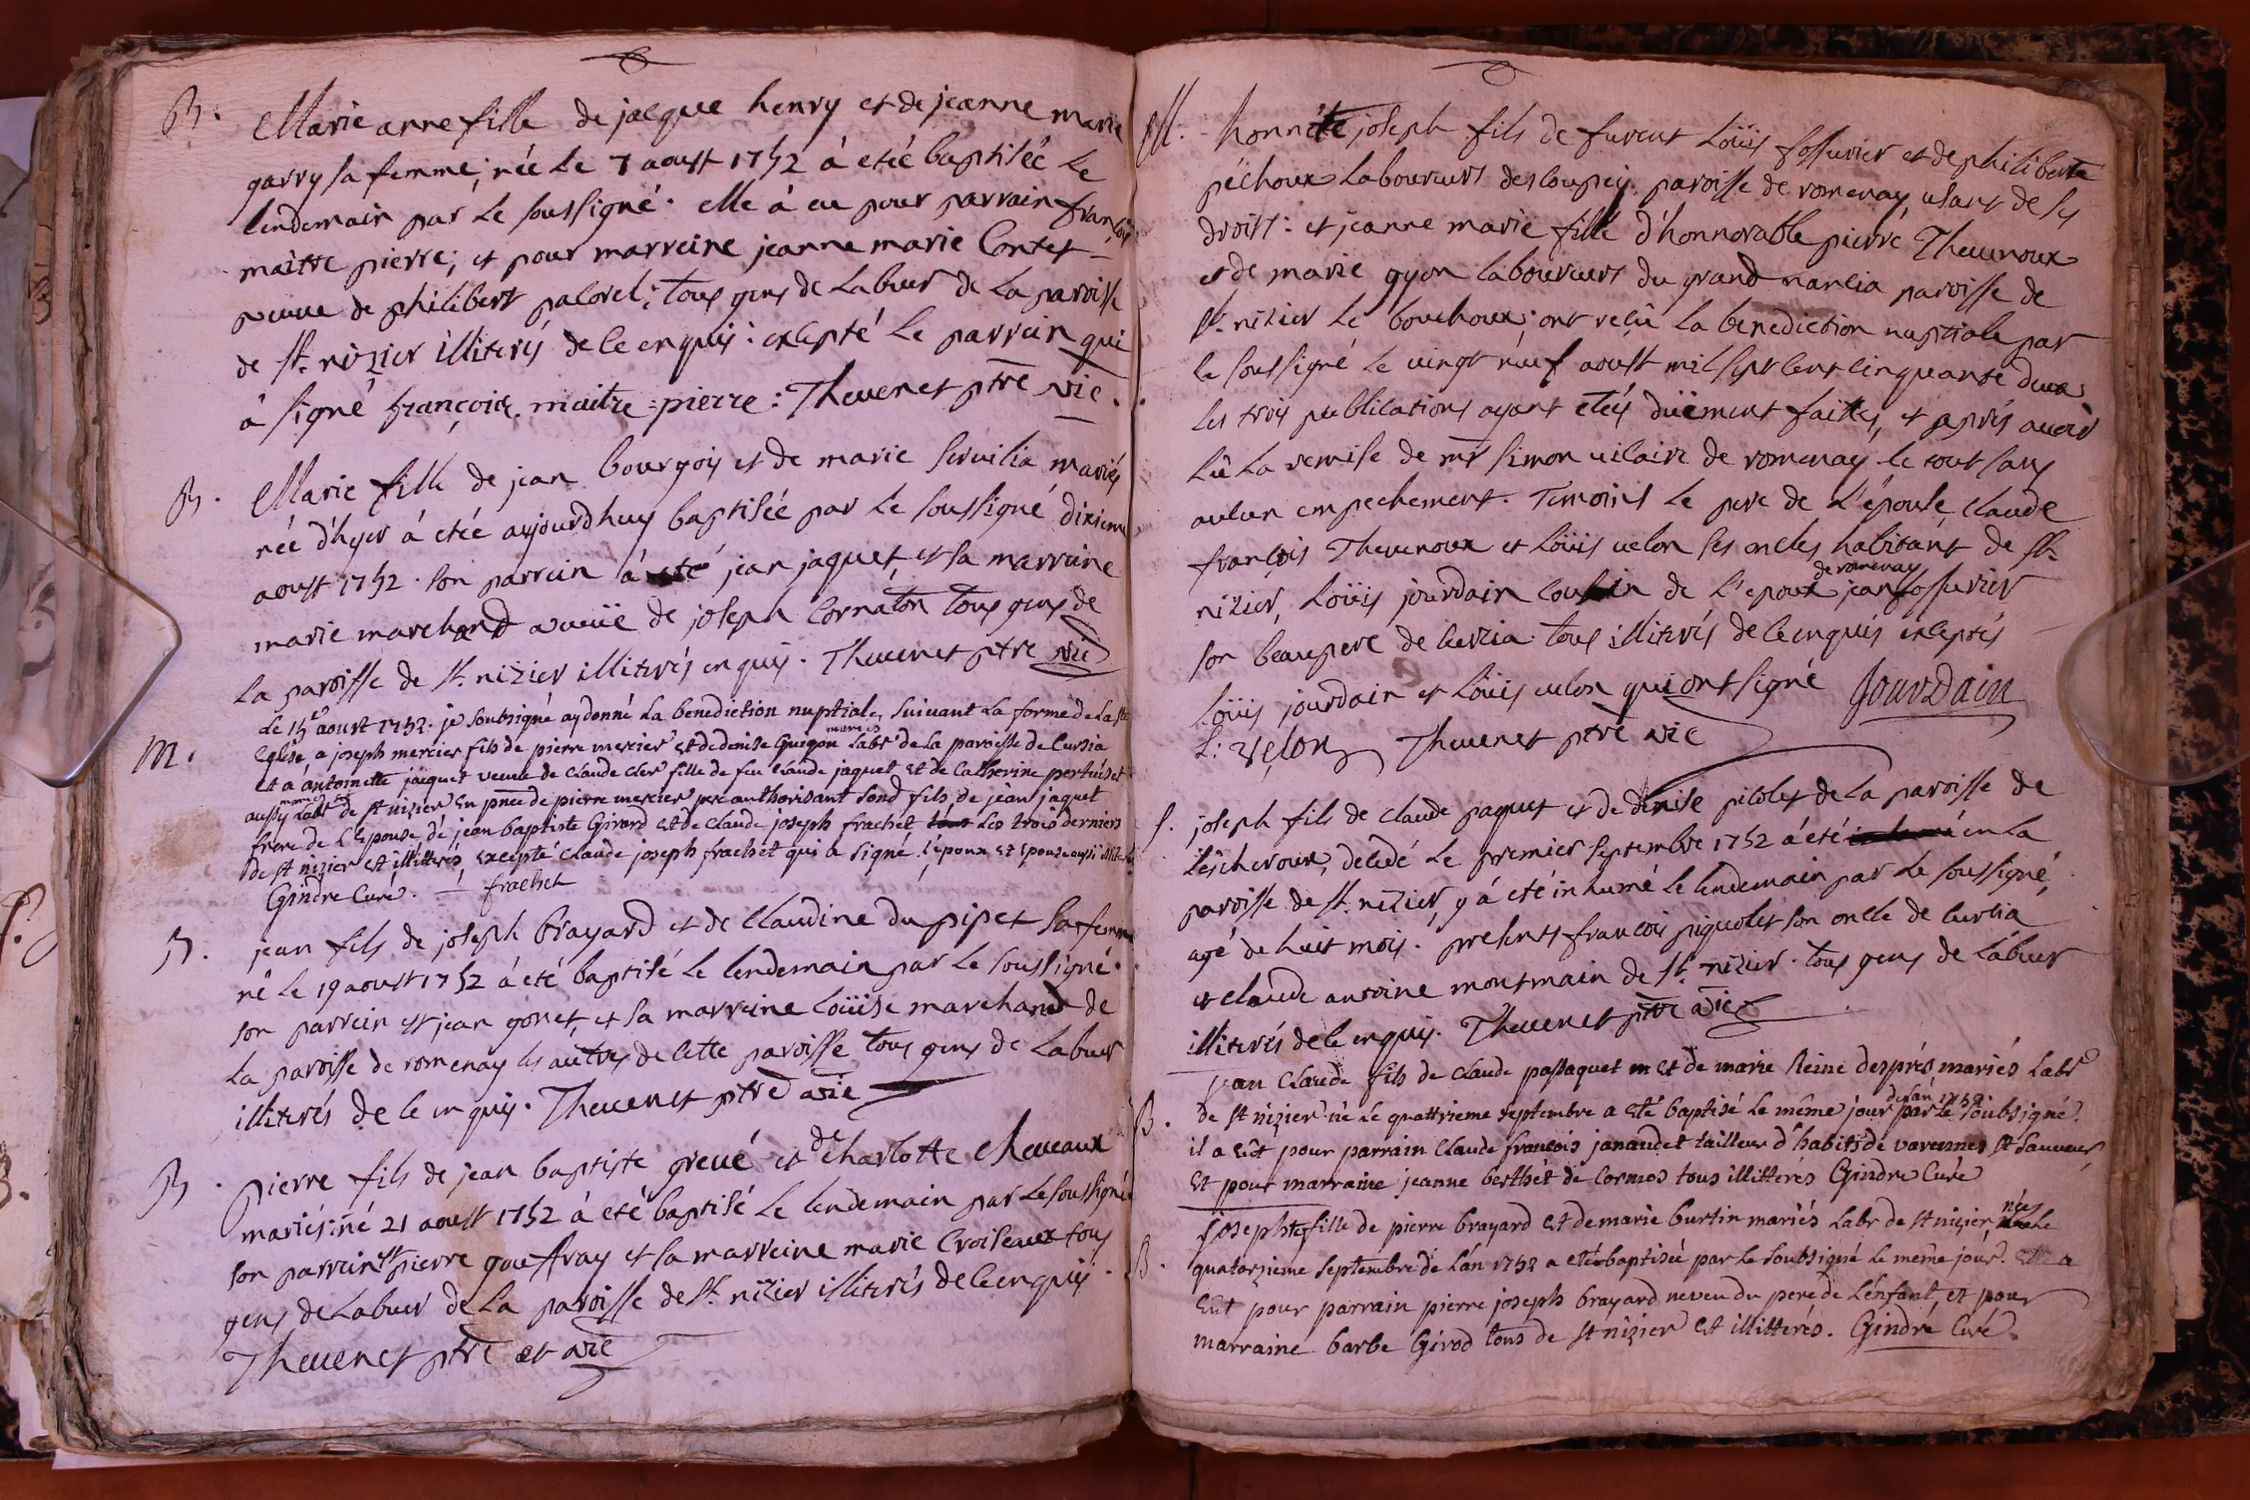 B. Marie anne fille de jacque henry et de jeanne marie
garry sa femme, née le 7 aoust 1752 à etéé baptiséé le
lendemain par le soussigné. elle à eu pour parrain françois
maitre pierre; et pour marreine jeanne marie Contet
veuve de philibert palorel; tous gens de labeur de la paroisse
de st. nizier illiterés de ce enquis: excepté le parrein qui
à signé françois maitre pierre: Thevenet ptre vic.
B. Marie fille de jean bourgois et de marie servilia mariés
née d'hyer à etée aujourdhuy baptisée par le soussigné dixieme
aoust 1752. son parrein à eté jean jaquet et sa marreine
marie marchand veuve de joseph Cornaton tous gens de
la paroisse de st. nizier illiterés enquis. Thevenet ptre vic
Le 15e aoust 1752. je soubsigné ay donné la benediction nuptiale, suivant la forme de la ste
M. Eglise, a joseph mercier fils de pierre mercier et de denise Guigon mariés labr de la paroisse de Curzia
et a antoinette jacquet veuve de claude cler fille de feu claude jaquet et de Catherine pertuiset
aussy mariés labr de st nizier en pnce de pierre mercier pere authorisant sond fils, de jean jaquet
frere de l'Epouse, de jean baptiste Girard et de claude joseph frachet les trois derniers
de st nizier et illitterés, excepté claude joseph frachet qui a signé, l'époux et Epouse aussi
Gindre Curé. frachet
B. jean fils de joseph brayard et de claudine du pipet sa femme
né le 19 aoust 1752 à eté baptisé le lendemain par le soussigné.
son parrein est jean gonet, et sa marreine Loüise marchand de
la paroisse de romenay les autres de cette paroisse tous gens de labeur
illiterés de ce enquis. Thevenet ptre vic
B. pierre fils de jean baptiste grevé et de charlotte cheveaux
mariés: né 21 aoust 1752 à eté baptisé le lendemain par le soussigné
son parrein est pierre gouffray et sa marreine marie Croiseaux tous
gens de labeur de la paroisse de st. nizier illiterés de ce enquis.
Thevenet ptre et vic
M. honnete joseph fils de furent Loüis fossurier et de philiberte
péchoux laboureurs des loupeis paroisse de romenay, usant de ses
droits: et jeanne marie fille d'honnorable pierre Thevenoux
et de marie gyon laboureurs du grand nancia paroisse de
st. nizier le bouchoux: ont reçû la benediction nuptiale par
le soussigné le vingt neuf aoust mil sept cent cinquante deux
les trois publications ayant etéés düement faittes, et après avoir
lû la remise de mr simon vicaire de romenay le tout sans
aucun empechement. Temoins le pere de l'épouse, claude
françois Thevenoux et Loüis velon ses oncles habitant de st.
nizier, Loüis jourdain cousin de l'epoux de romenay jean fossurier
son beaupere de curzia tous illiterés de ce enquis exceptés
Loüis jourdain et Loüis velon qui ont signé Jourdain
L: velon Thevenet ptre vic
S. joseph fils de claude paquet et de denise picolet de la paroisse de
lescheroux, decedé le premier septembre 1752 à eté en la
paroisse de st. nizier, y à eté inhumé le lendemain par le soussigné,
agé de huit mois. presents françois piguolet son oncle de curtia
et claude antoine montmain de st. nizier. tous gens de labeur
illiterés de ce enquis. Thevenet ptre vic
B. jean claude fils de claude passaquet et de marie Reine desprès mariés labr
de st nizier né le quattrieme septembre de l'an 1752 a eté baptisé le même jour par le soubsigné.
il a eüt pour parrain claude francois janaudet tailleur d'habits de varennes st sauveur,
et pour marraine jeanne berthet de Cormos tous illitteres Gindre Curé
B. josephte fille de pierre brayard et de marie burtin mariés labr de st nizier née le
quatorzieme septembre de l'an 1752 a eté baptisée par le soubsigné le même jour. Elle a
eüt pour parrain pierre joseph brayard neveu du pere de l'enfant, et pour
marraine barbe Girod tous de st nizier et illitterés. Gindre Curé.